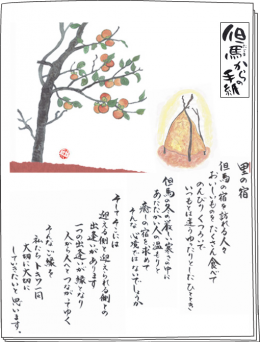 但馬からの手紙
里の宿
但馬の宿を訪れる人々
おいしいものをたくさん食べて
のんびりくつろいで
いつもとは違うゆったりとしたひととき
但馬の冬の厳しい寒さの中に
あたたかい人の温もりと
癒しの宿を求めて
そんな心境ではないでしょうか
そしてそこには
迎える側と迎えられる側との
出逢いがあります
一つの出逢いが縁となり
人から人とつながってゆく
そんないい縁を
私たちトキワ一同
大切に大切に
していきたいと思います。